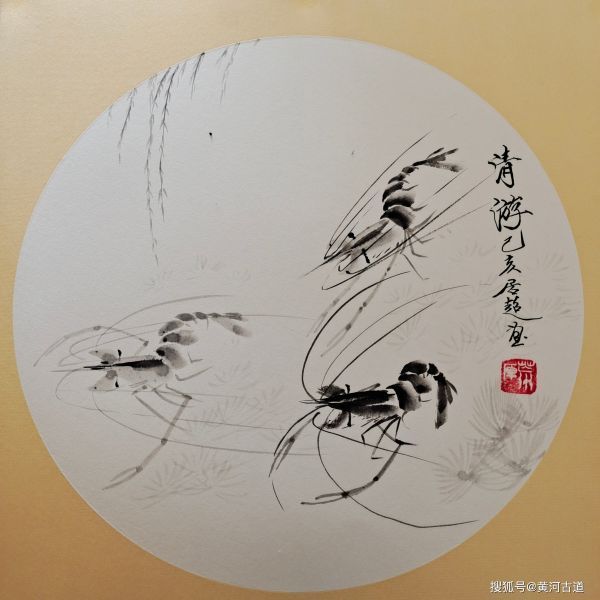 清游己亥居超画
搜狐号@黄河古道